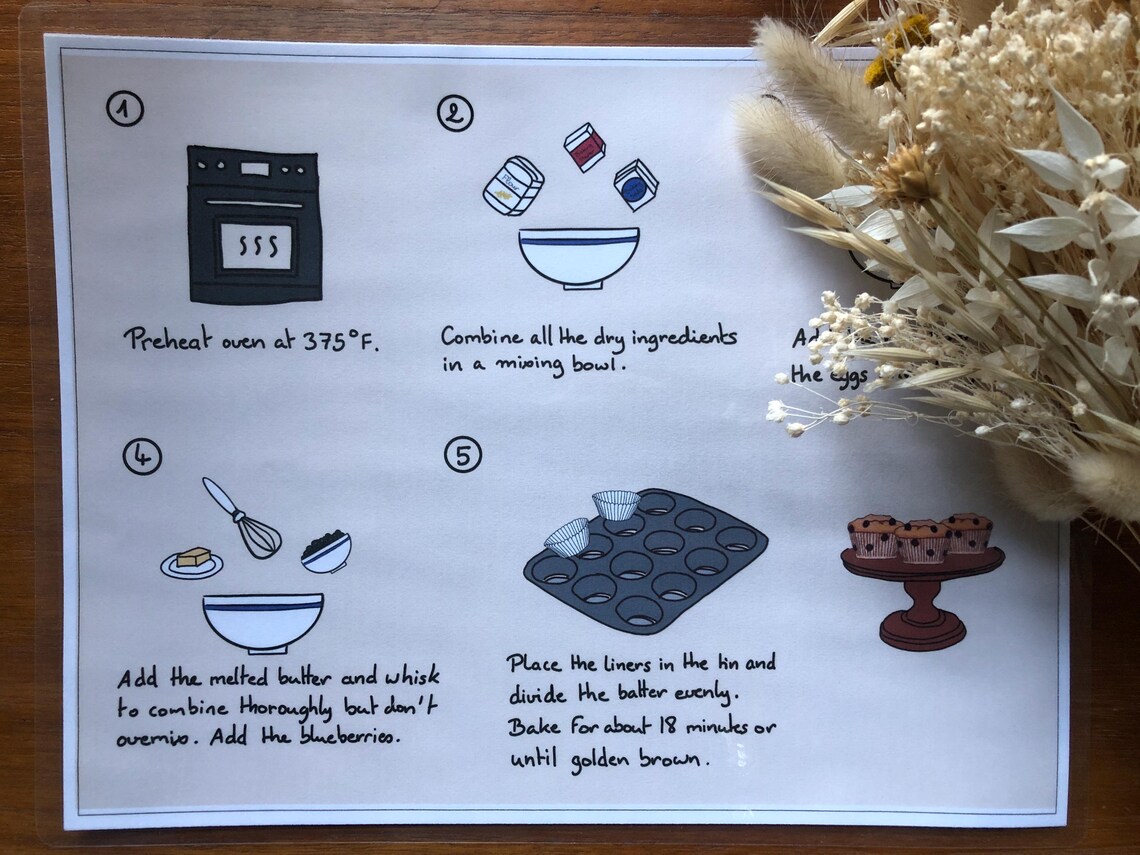 1
Preheat oven at 375°F.
2
Flour
Combine all the dry ingredients
in a mixing bowl.
the eggs
4
Add the melted butter and whisk
to combine thoroughly but don't
overmix. Add the blueberries.
5
Place the liners in the tin and
divide the batter evenly.
Bake for about 18 minutes or
until golden brown.